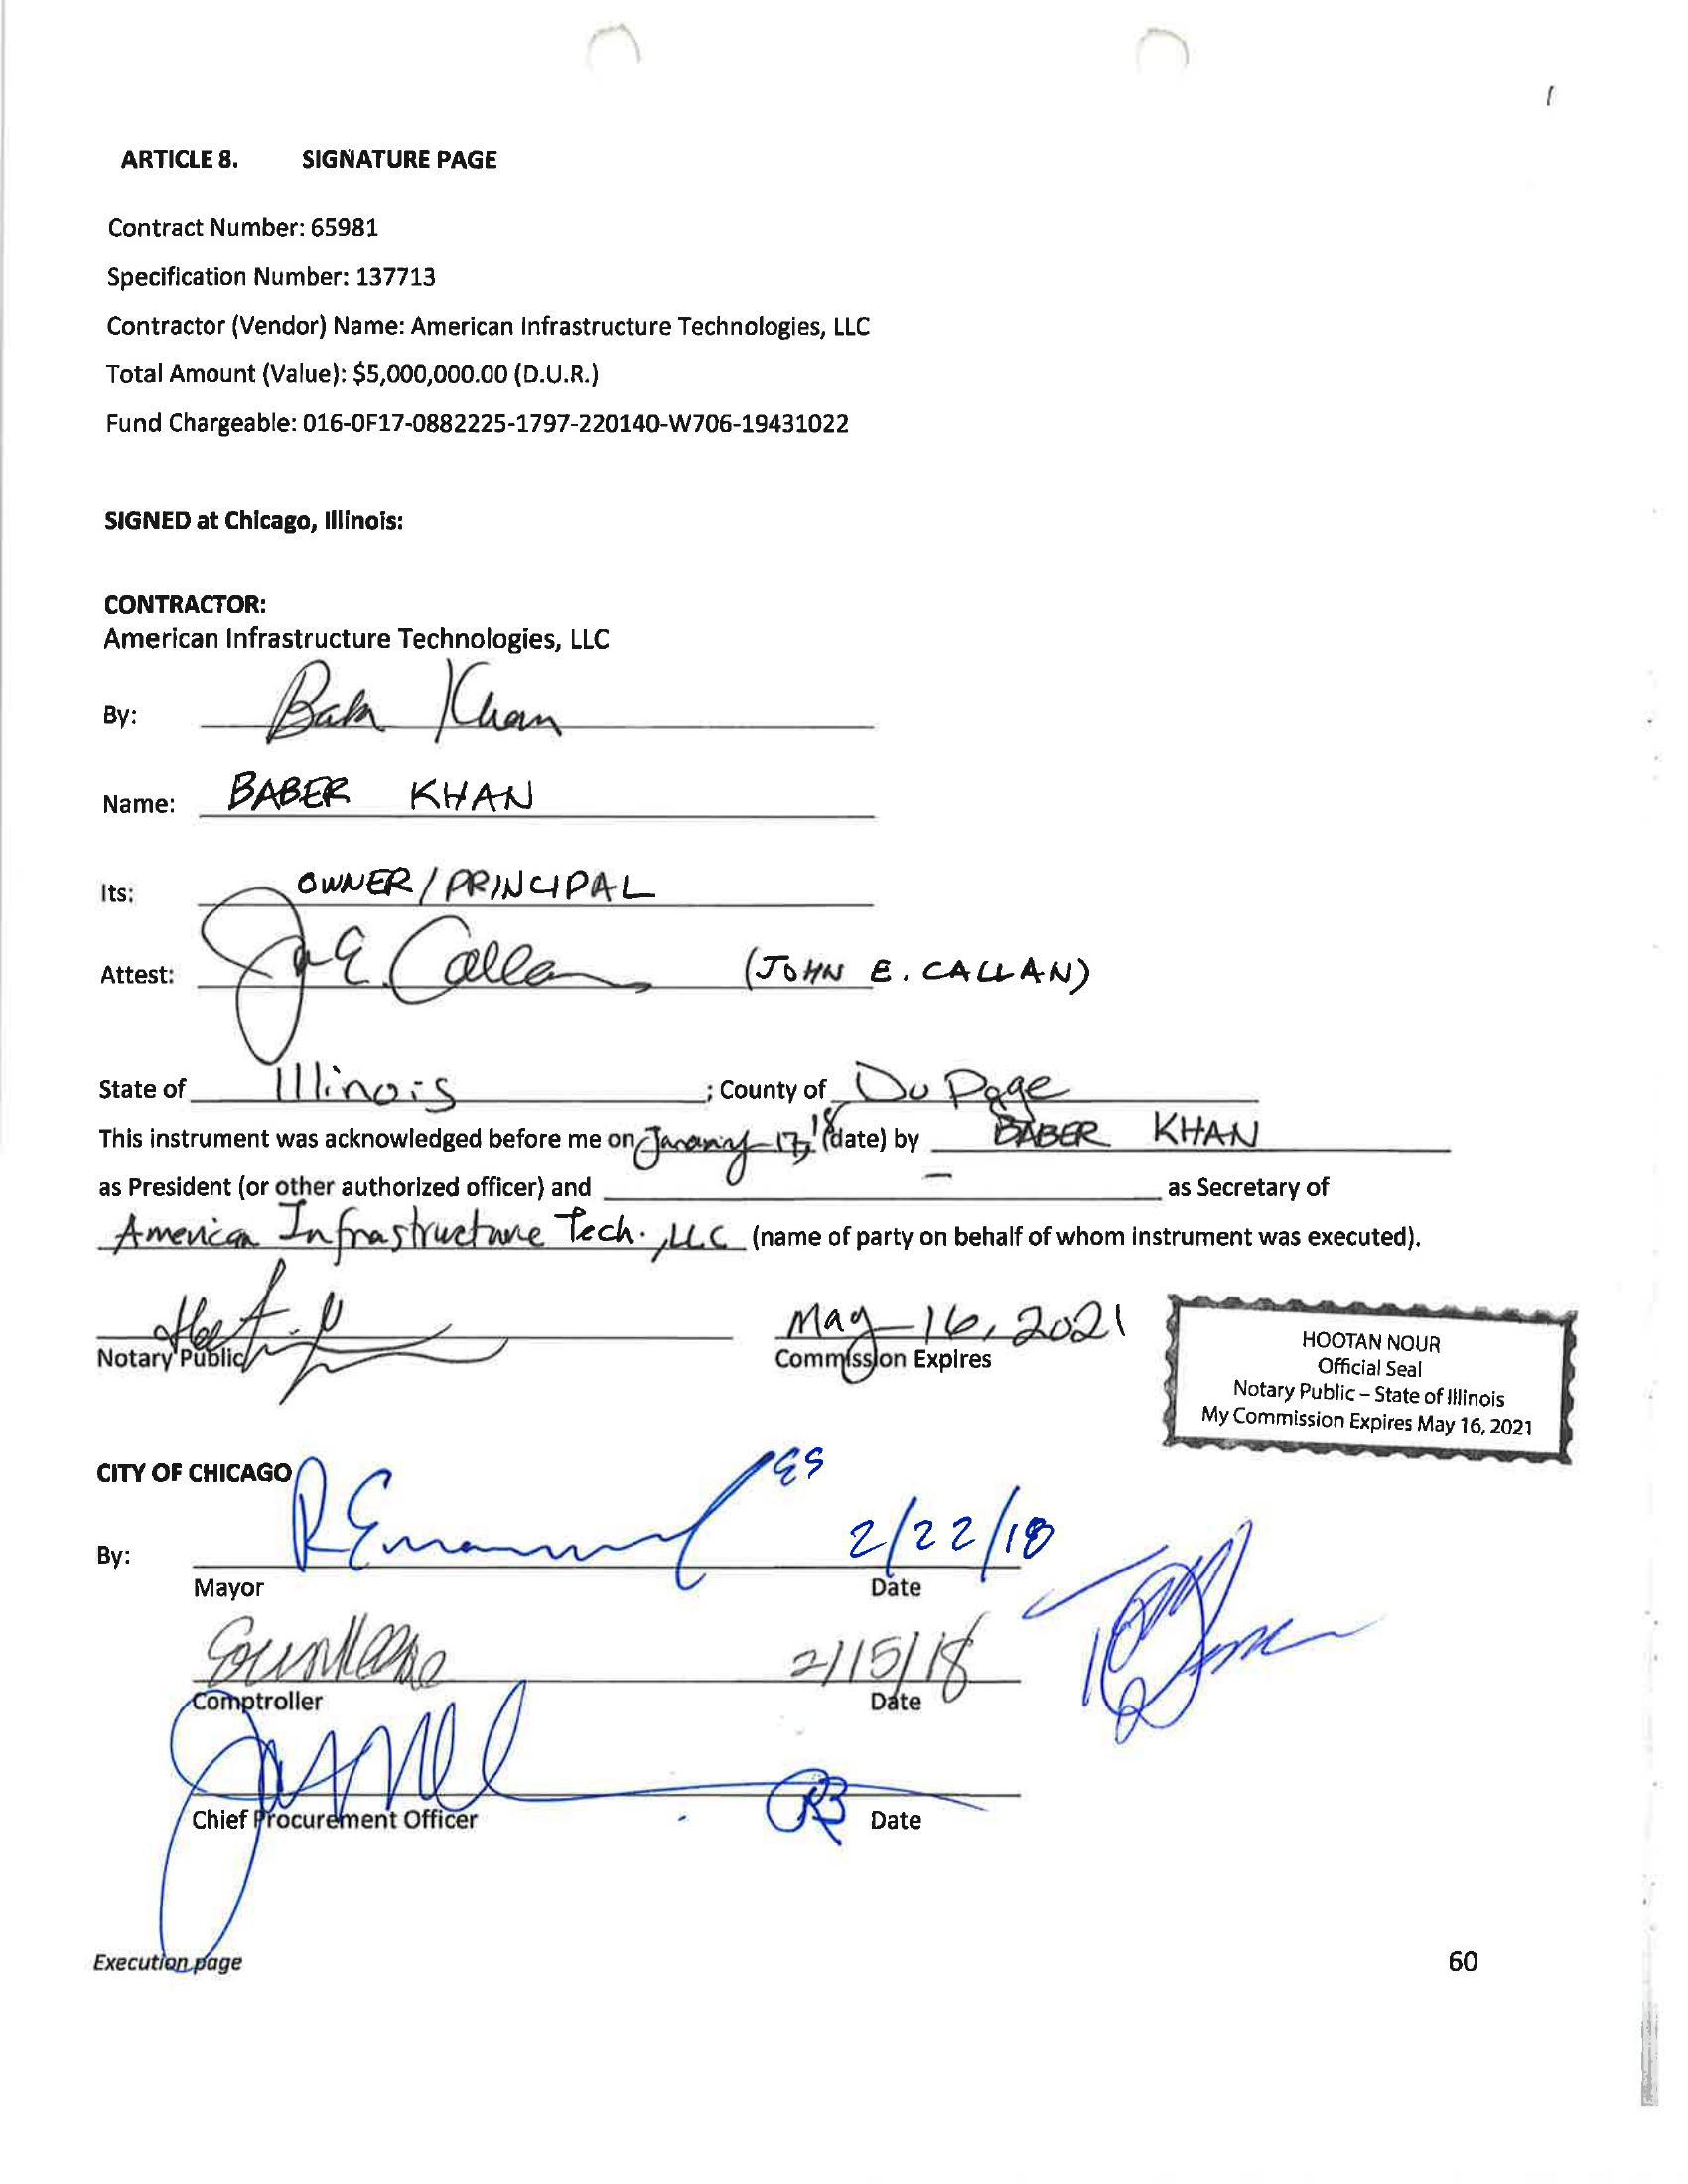 ARTICLE 8. SIGNATURE PAGE
Contract Number: 65981
Specification Number: 137713
Contractor (Vendor) Name: American Infrastructure Technologies, LLC
Total Amount (Value): $5,000,000.00 (D.U.R.)
Fund Chargeable: 016-0F17-0882225-1797-220140-W706-19431022
SIGNED at Chicago, Illinois:
CONTRACTOR:
American Infrastructure Technologies, LLC
By: Khan
Name: BABER KHAN
Its: OWNER/PRINCIPAL
Attest: (JOHN E. CALLAN)
State of Illinois ; County of Du Page
This instrument was acknowledged before me on January 17, 18 (date) by BABER KHAN
as President (or other authorized officer) and — as Secretary of
American Infrastructure Tech., LLC (name of party on behalf of whom instrument was executed).
May 16, 2021
Notary Public Commission Expires
HOOTAN NOUR
Official Seal
Notary Public – State of Illinois
My Commission Expires May 16, 2021
CITY OF CHICAGO
ES
By: 2/22/18
Mayor Date
2/15/18
Comptroller Date
RB
Chief Procurement Officer Date
Execution page 60